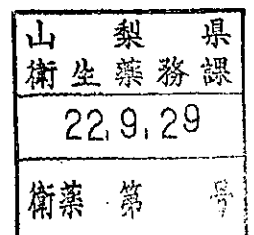 山梨県
衛生薬務課
22.9.29
衛薬 第 号